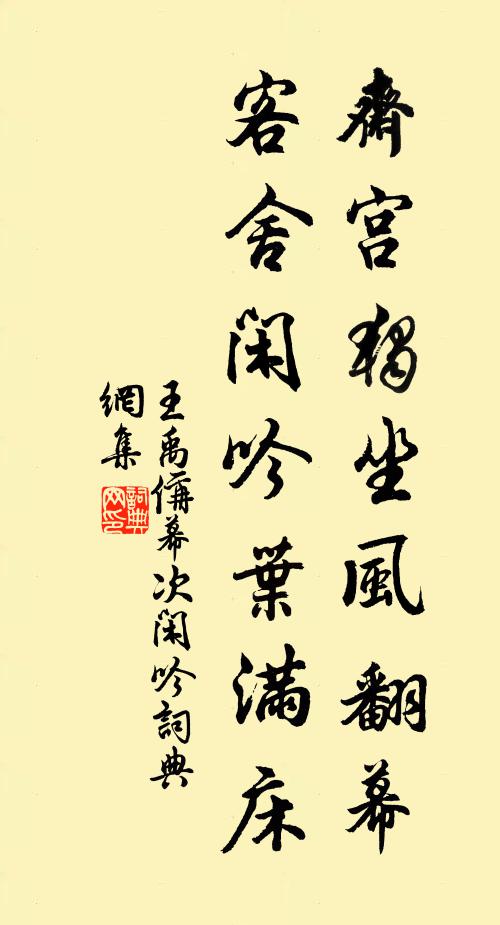 齋宮獨坐風翻幕
客舍閑吟葉滿床
王禹偁幕次閑吟詞典
網集
詞典網印